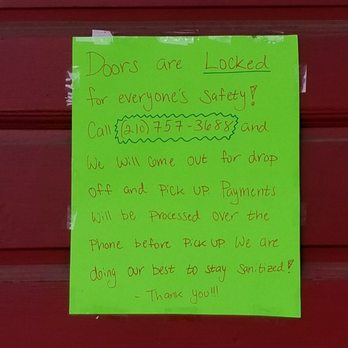 Doors are Locked
for everyone's safety!
Call (210) 757-3688 and
We will come out for drop
off and Pick up Payments
will be Processed over the
Phone before Pick up. We are
doing our best to stay sanitized!
- Thank you!!!